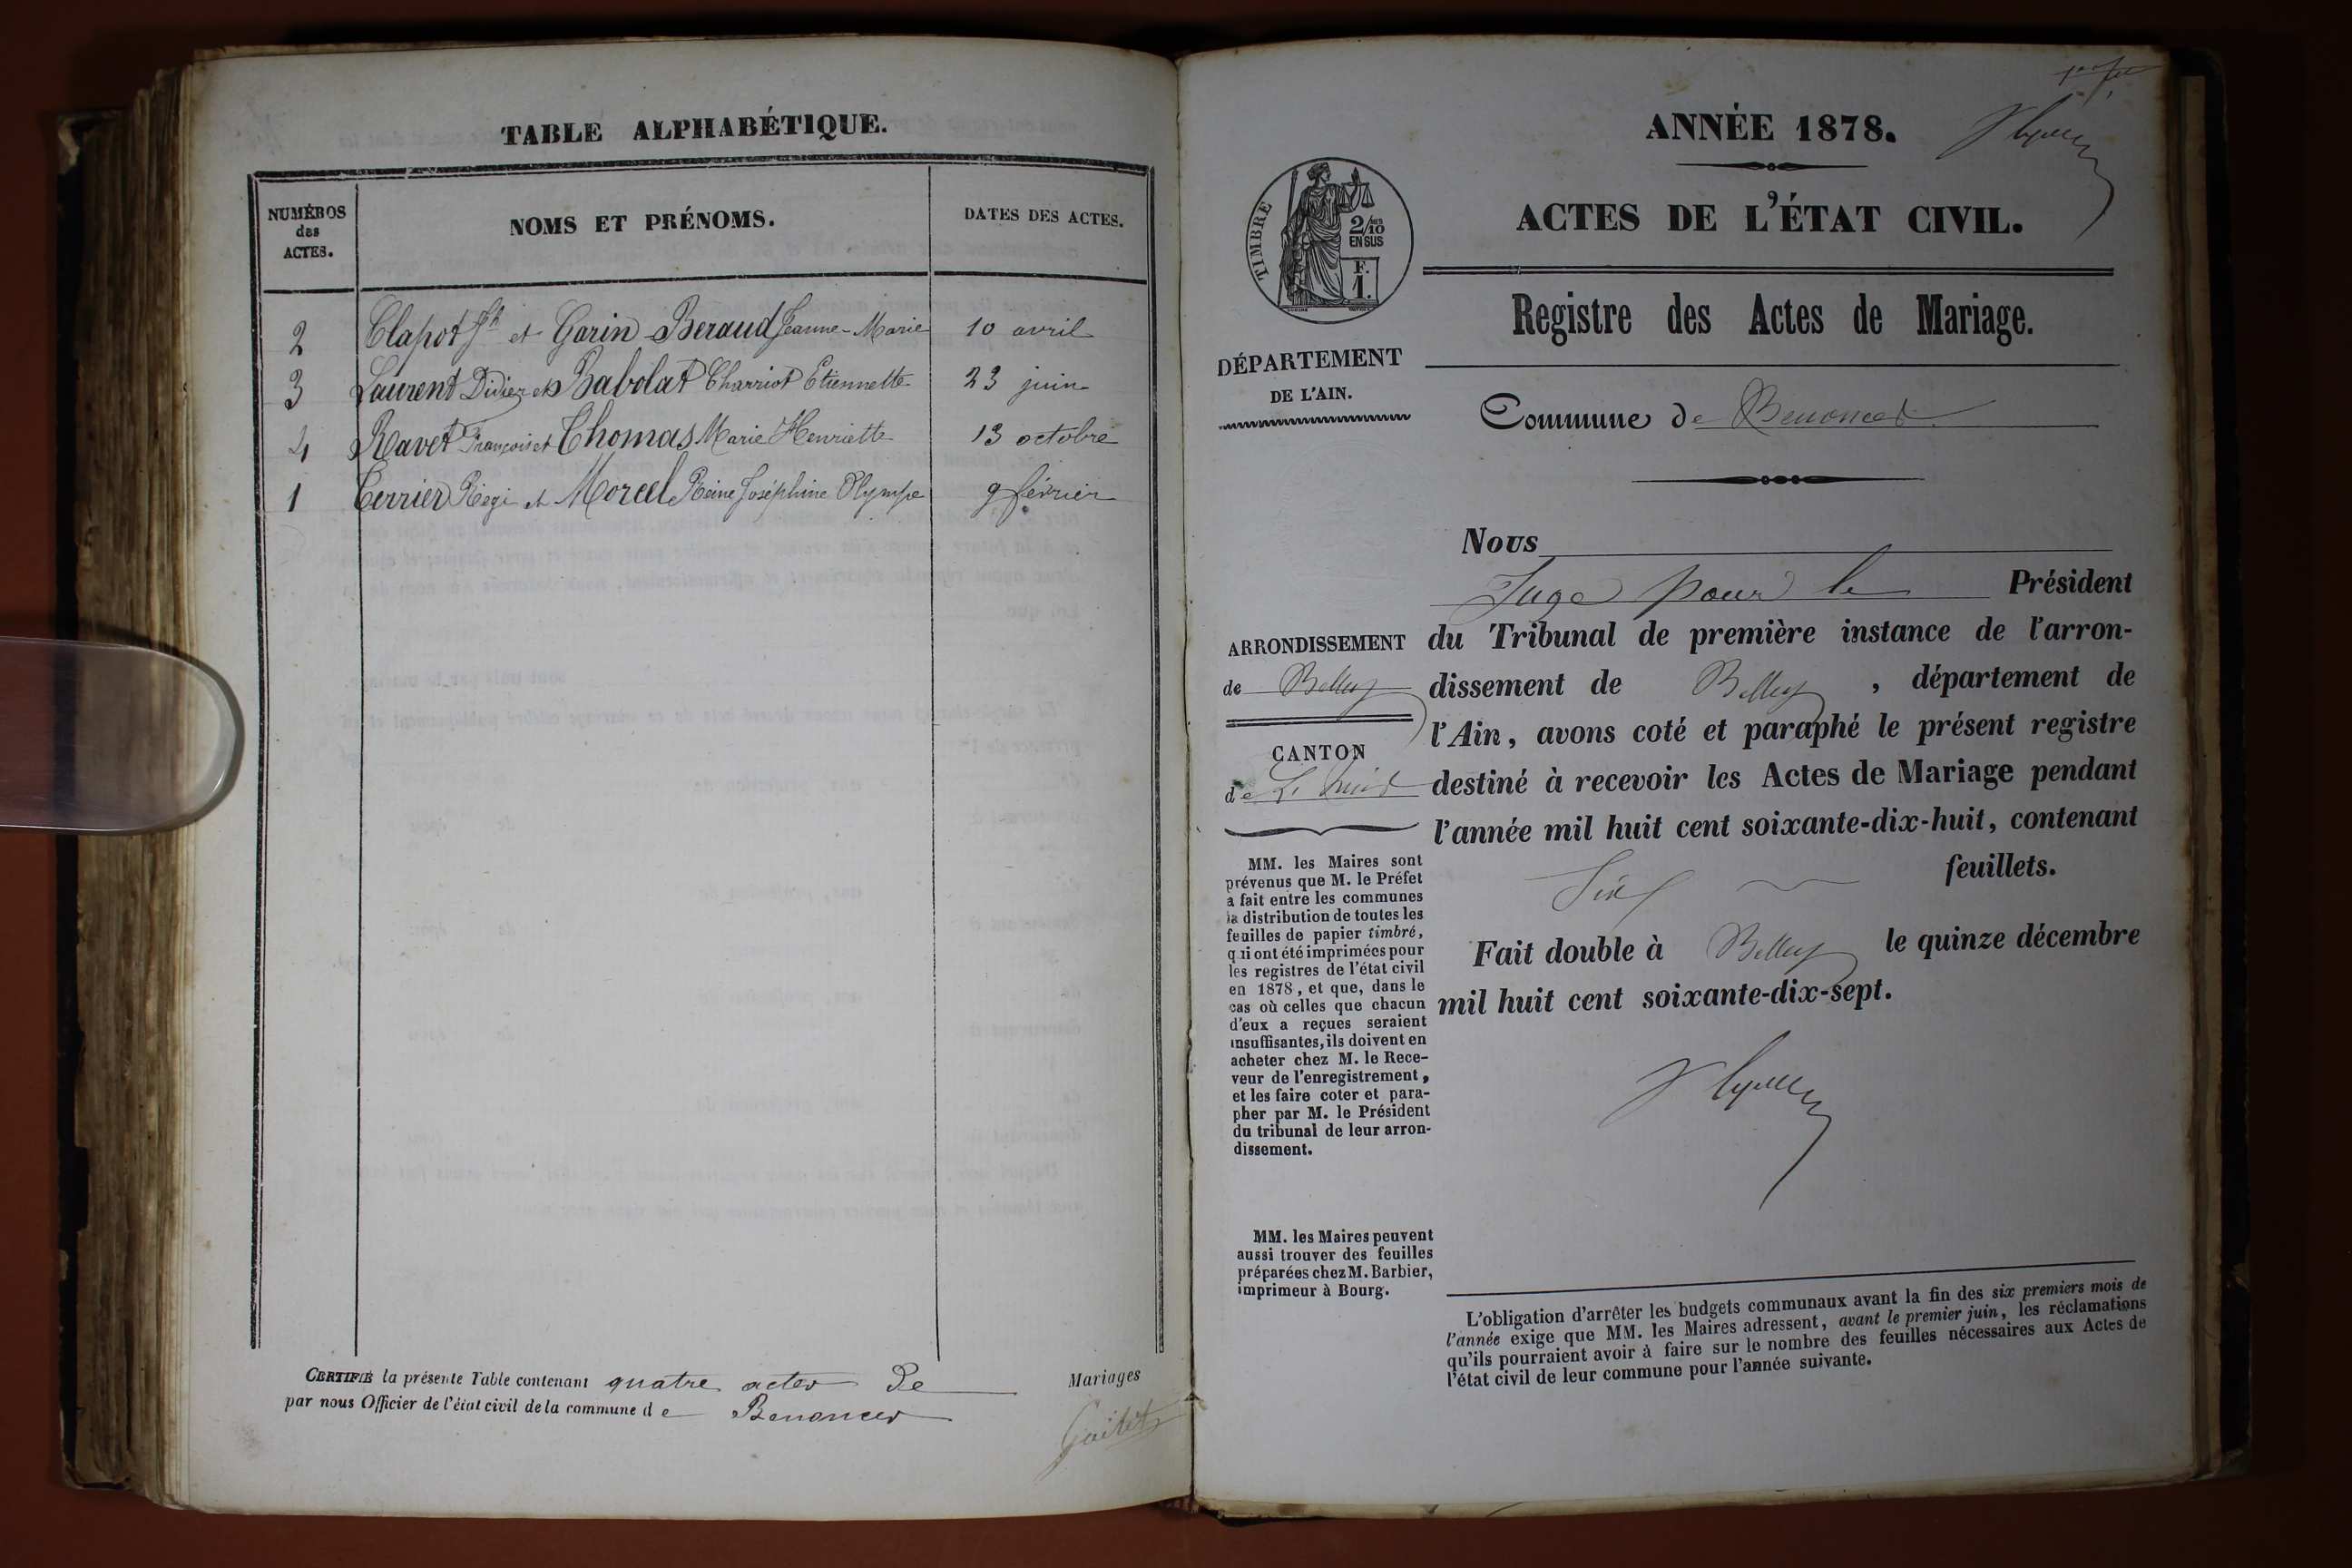 TABLE ALPHABÉTIQUE.
NUMÉROS
des
ACTES.
NOMS ET PRÉNOMS.
DATES DES ACTES.
2 Clapot Jh et Garin-Beraud Jeanne-Marie 10 avril
3 Laurent Didier et Babolat Charriot Etiennette 23 juin
4 Ravet François et Thomas Marie Henriette 13 octobre
1 Régi et Morcel Reine Joséphine Olympe 9 février
CERTIFIÉ la présente Table contenant quatre actes de Mariages
par nous Officier de l'état civil de la commune de Benonces
ANNÉE 1878.
ACTES DE L'ÉTAT CIVIL.
TIMBRE
2/10
EN SUS
F.
1.
Registre des Actes de Mariage.
DÉPARTEMENT
DE L'AIN.
Commune de Benonces
Nous
Juge pour le Président
ARRONDISSEMENT
de Belley
CANTON
de
du Tribunal de première instance de l'arron-
dissement de Belley, département de
l'Ain, avons coté et paraphé le présent registre
destiné à recevoir les Actes de Mariage pendant
l'année mil huit cent soixante-dix-huit, contenant
Six feuillets.
Fait double à Belley le quinze décembre
mil huit cent soixante-dix-sept.
MM. les Maires sont
prévenus que M. le Préfet
a fait entre les communes
la distribution de toutes les
feuilles de papier timbré,
qui ont été imprimées pour
les registres de l'état civil
en 1878, et que, dans le
cas où celles que chacun
d'eux a reçues seraient
insuffisantes, ils doivent en
acheter chez M. le Rece-
veur de l'enregistrement,
et les faire coter et para-
pher par M. le Président
du tribunal de leur arron-
dissement.
MM. les Maires peuvent
aussi trouver des feuilles
préparées chez M. Barbier,
imprimeur à Bourg.
L'obligation d'arrêter les budgets communaux avant la fin des six premiers mois de
l'année exige que MM. les Maires adressent, avant le premier juin, les réclamations
qu'ils pourraient avoir à faire sur le nombre des feuilles nécessaires aux Actes de
l'état civil de leur commune pour l'année suivante.